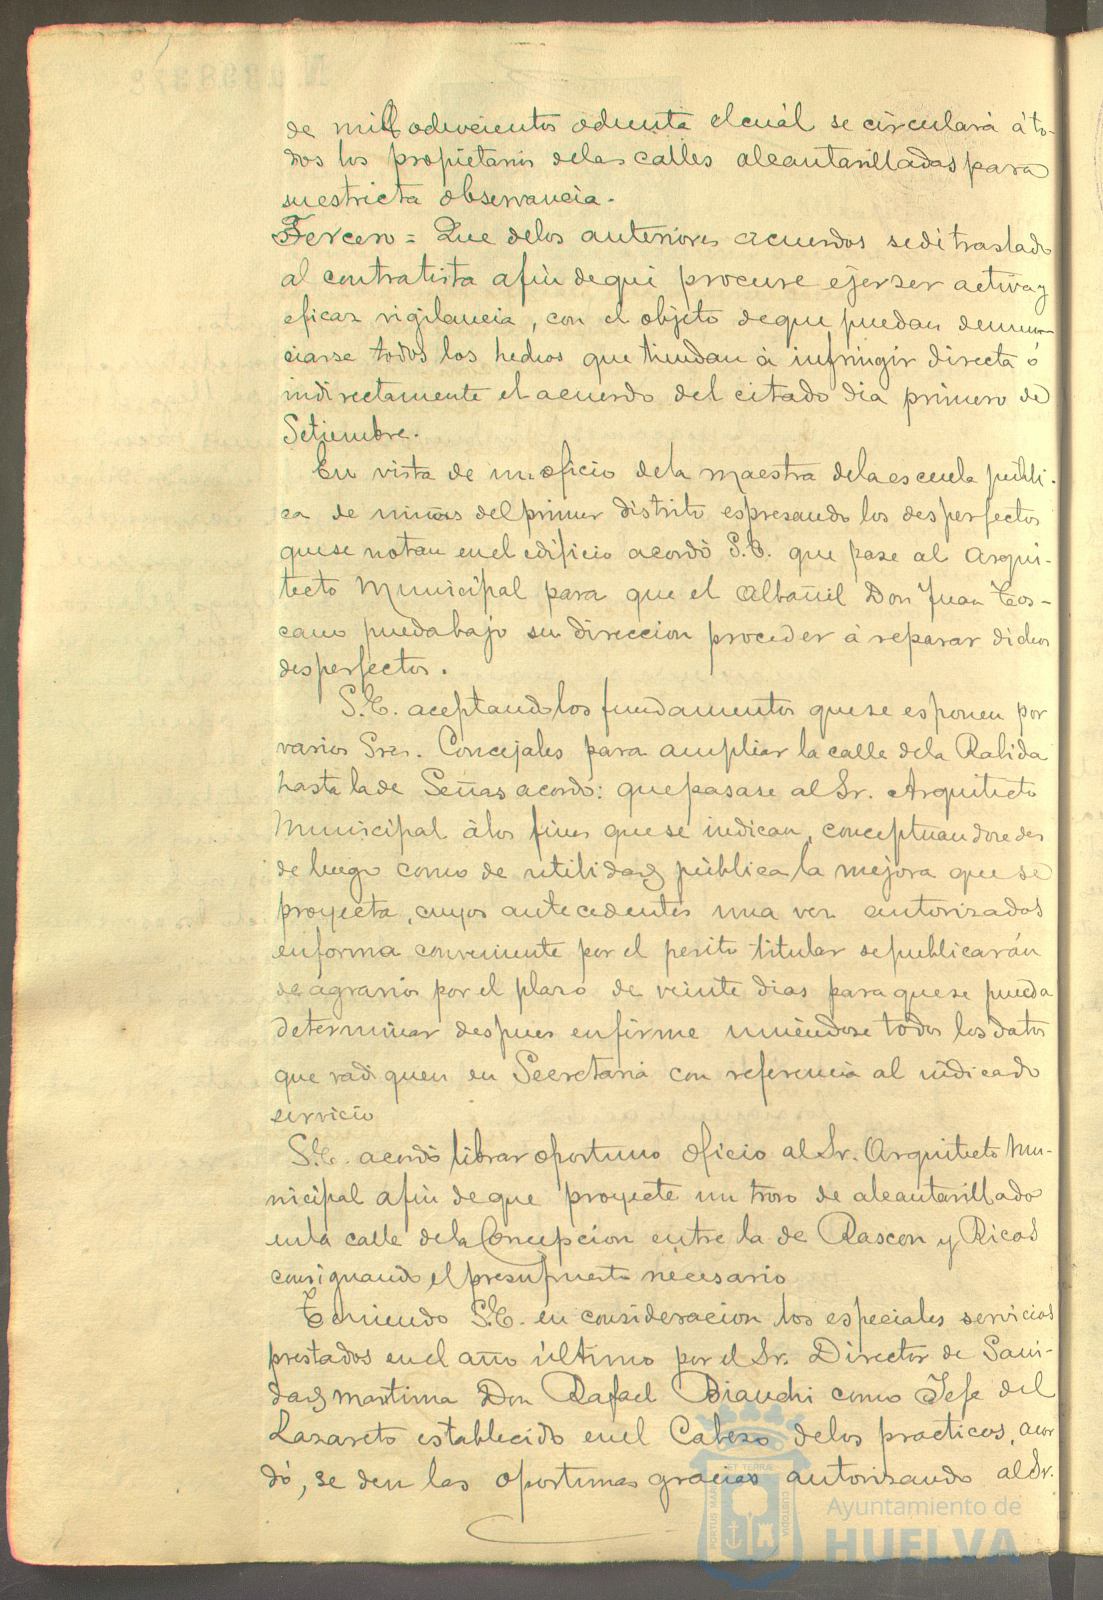 de mil ochocientos ochenta el cuál se circulará á to-
dos los propietarios de las calles alcantarilladas para
su estricta observancia.
Tercero = Que de los anteriores acuerdos se dé traslado
al contratista afin de que procure ejerser activa y
eficaz vigilancia, con el objeto de que puedan denun-
ciarse todos los hechos que tiendan á infringir directa ó
indirectamente el acuerdo del citado dia primero de
Setiembre.
En vista de un oficio de la maestra de la escuela públi-
ca de niñas del primer distrito espresando los desperfectos
que se notan en el edificio acordó S.E. que pase al Arqui-
tecto Municipal para que el Albañil Don Juan Tos-
cano pueda bajo su direccion proceder á reparar dichos
desperfectos.
S.E. aceptando los fundamentos que se esponen por
varios Sres. Concejales para ampliar la calle de la Rabida
hasta la de Señas acordo: que pasase al Sr. Arquitecto
Municipal á los fines que se indican, conceptuandose des
de luego como de utilidad pública la mejora que se
proyecta, cuyos antecedentes una vez autorizados
en forma conveniente por el perito titular se publicarán
de agravios por el plazo de veinte dias para que se pueda
determinar despues en firme uniéndose todos los datos
que radiquen en Secretaria con referencia al indicado
servicio
S.E. acordó librar oportuno oficio al Sr. Arquitecto Mu-
nicipal afin de que proyecte un trozo de alcantarillado
en la calle de la Concepcion entre la de Rascon y Ricos
consignando el presupuesto necesario
Teniendo S.E. en consideracion los especiales servicios
prestados en el año último por el Sr. Director de Sani-
dad maritima Don Rafael Bianchi como Jefe del
Lazareto establecido en el Cabezo de los practicos, acor
dó, se den las oportunas gracias autorizando al Sr.
PORTUS MARIS ET TERRAE CUSTODIA
Ayuntamiento de
HUELVA